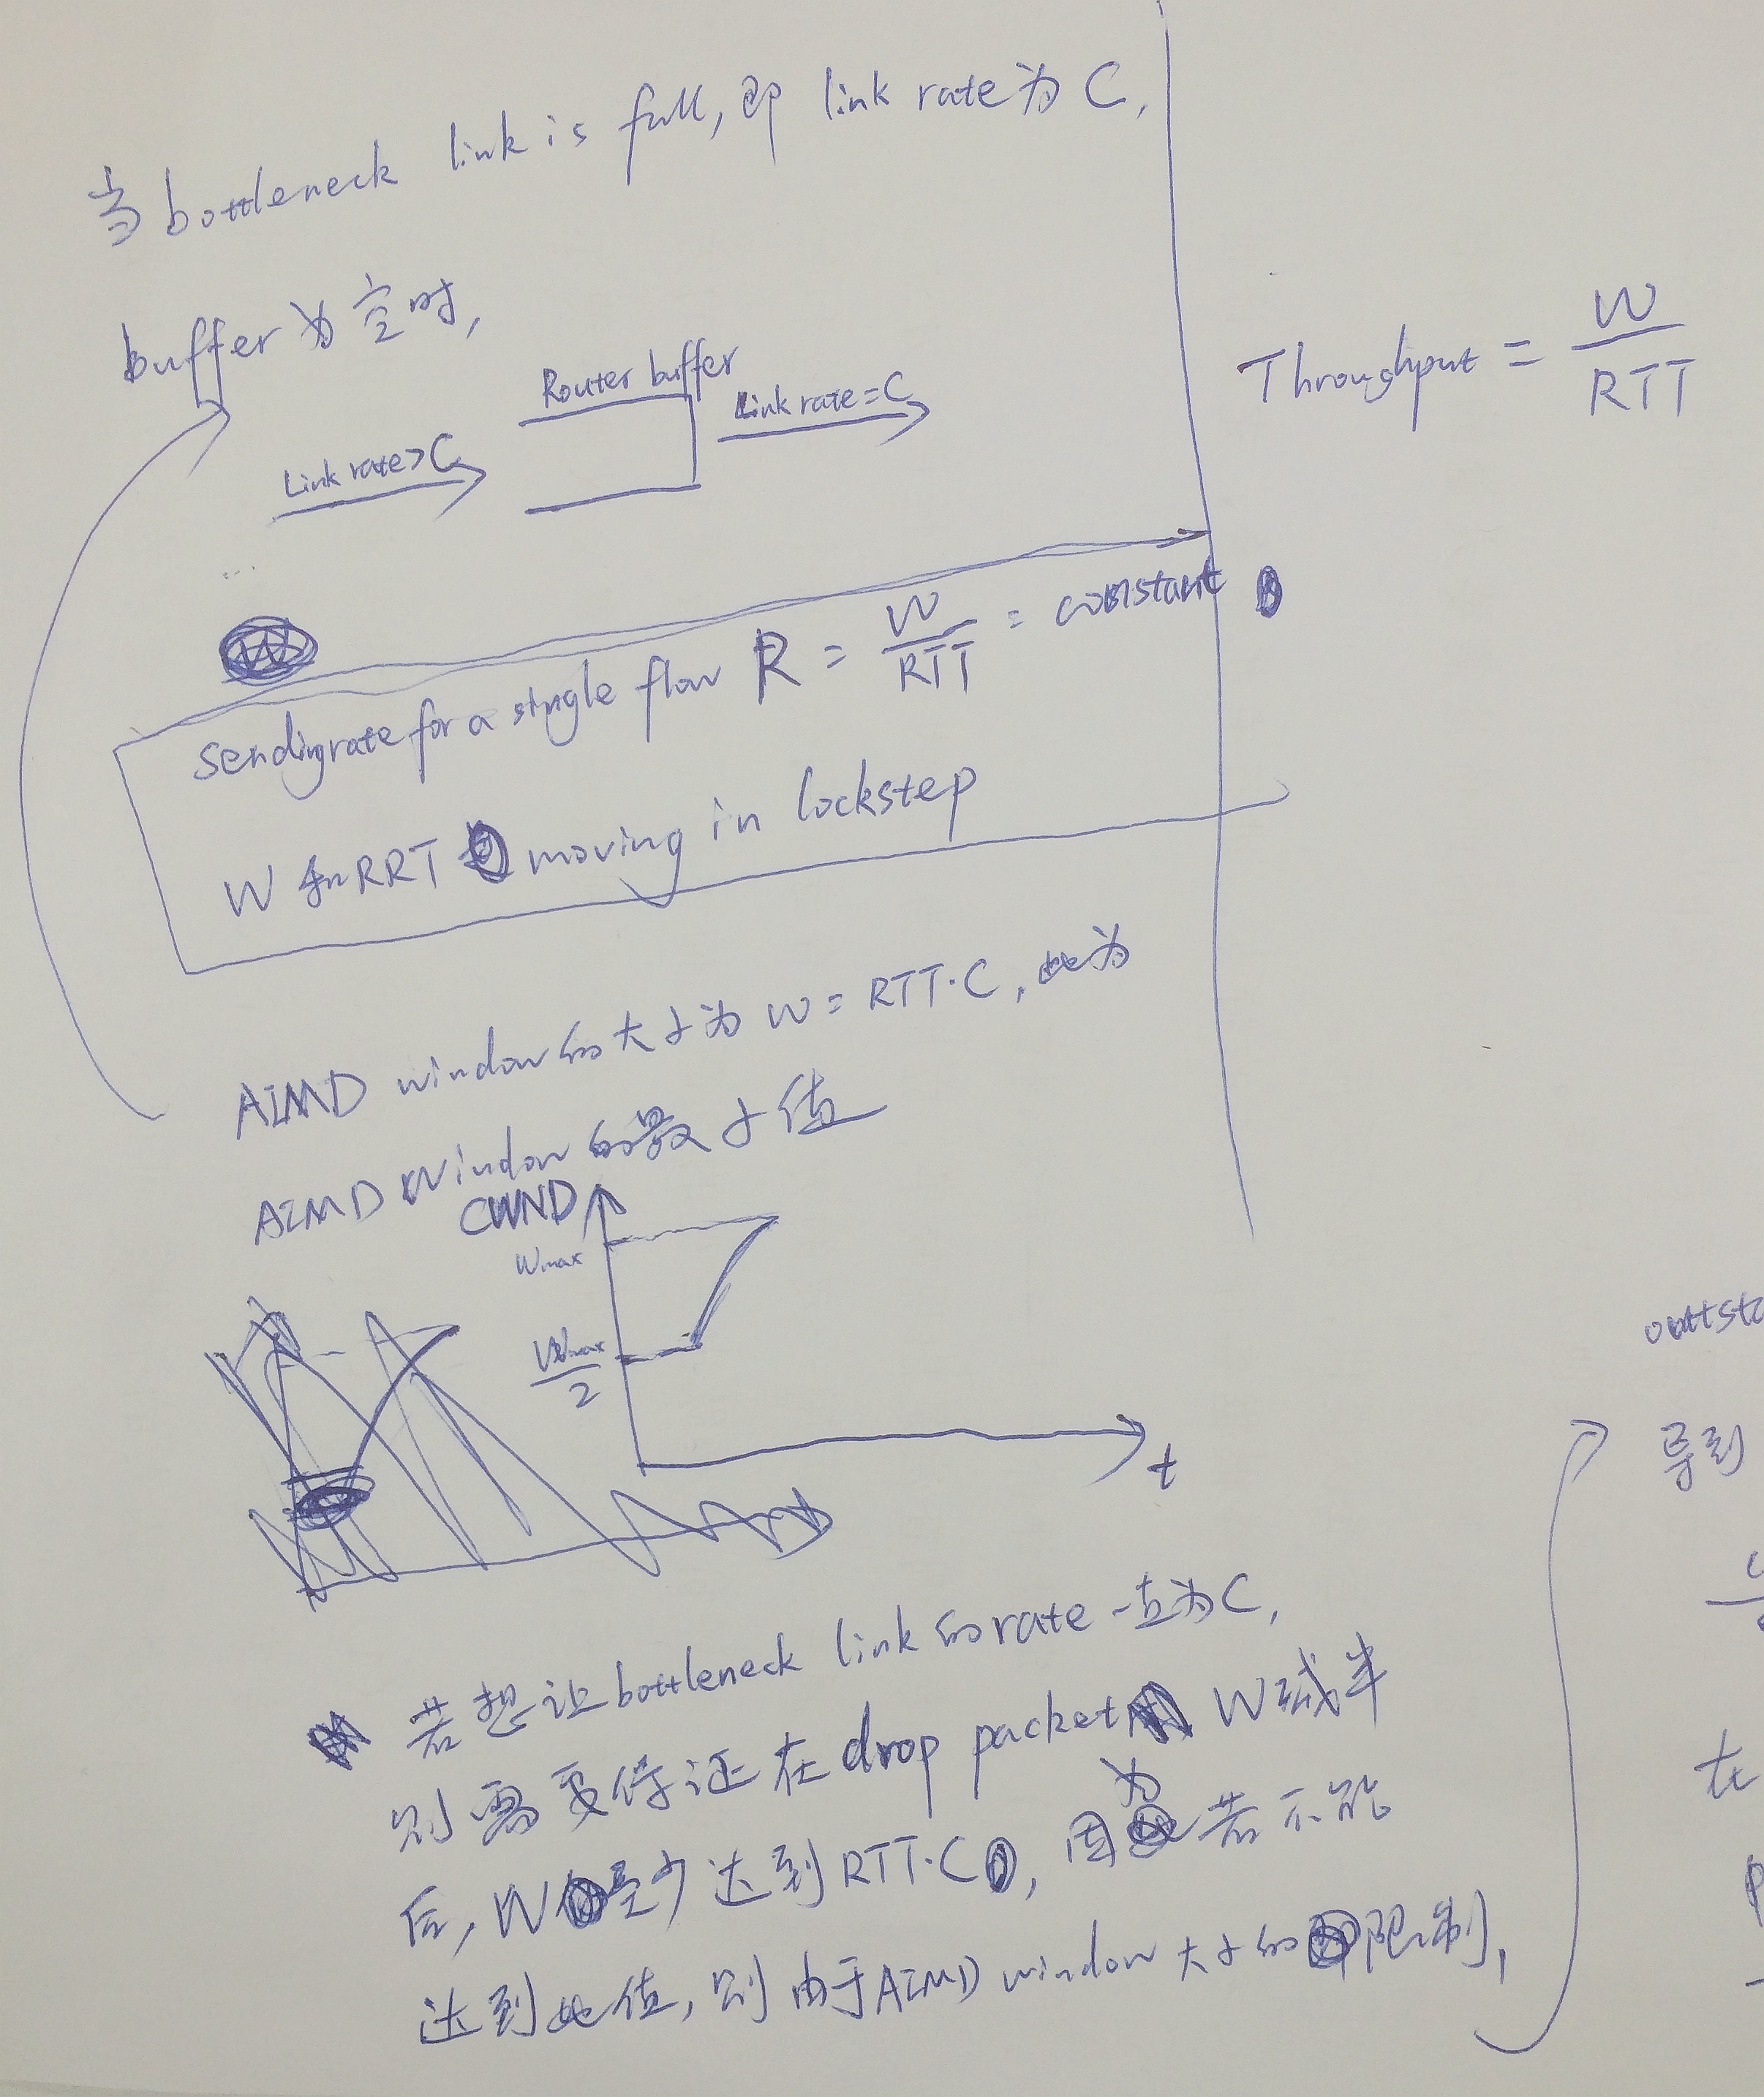 当 bottleneck link is full, 即 link rate 为 C,
buffer 为空时,
Router buffer
Link rate = C
Link rate > C
Throughput = W / RTT
sending rate for a single flow R = W / RTT = constant
W 和 RRT moving in lockstep
AIMD window 的大小为 W = RTT·C, 此为
AIMD Window 的最小值
CWND
Wmax
Wmax / 2
t
若想让 bottleneck link 的 rate 一直为 C,
则需要保证在 drop packet W 减半
后, W 至少达到 RTT·C, 因为若不能
达到此值, 则由于 AIMD window 大小的限制,
导到
在